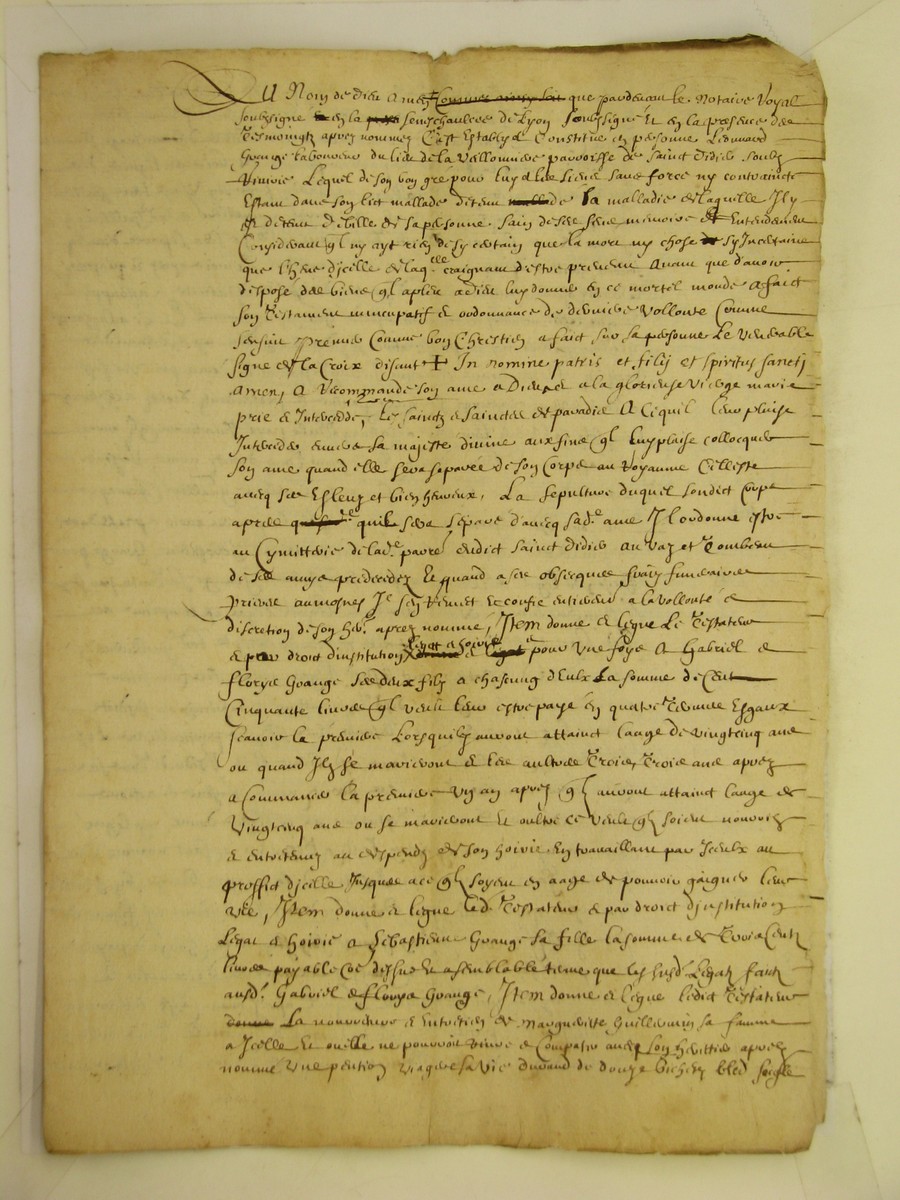 Au Nom de Dieu Amen que pardevant le Notaire Royal
soubsigné en la seneschaulcee de Lyon soubsigné et en la presence des
Tesmoingtz apres nommez C'est estably et constitué en personne Lieonard
Grange laboureur du lieu de la Vallonniere parroisse de Sainct Didier soubz
Riverie Lequel de son bon gre pour luy et les siens sans force ny contraincte
Estant dans son lict mallade detenu de la malladie de laquelle Il y
est detenu debille de sa personne sain de ses sens memoire et Entendement
Considerant ql ny ayt rien de sy certain que la mort ny chose sy Incertaine
que l'heure d'icelle de laqlle craignant d'estre prevenu avant que d'avoir
dispose des biens ql a pleu a Dieu luy donner en ce mortel monde a faict
son Testament nuncupatif et ordonnance de derniere vollonté Comme
sensuit Premier Comme bon Chrestien a faict sur sa personne Le venerable
signe de la Croix disant + In nomine patris et filij et spiritus sancti
Amen, A Recommandé son ame a Dieu et a la glorieuse Vierge marie
prie et Intercede, les sainctz et sainctes de paradis A lequil leur plaise
Interceder envers sa majesté divine aux fins ql luy plaise collocquer
son ame quand elle sera separée de son Corps au Royaume Celleste
avecq ses Esleuz et bien heureux, La sepulture duquel sondict Corps
apres quil sera separe d'avecq sade ame Il ordonne estre
au Cymittere de lade parre dudict Sainct Didier au vaz et Tombeau
de ses amys predecedez Et quand a ses obseques frairy funeraires
Prieres aumosnes Il sen Remet et confie entierement a la vollonté et
discretion de son her apres nommé, Item donne et legue Le Testateur
et par droict d'institution legat et hoirie pour une foys A Gabriel et
Florys Grange ses deux filz a chascung d'Eulx La somme de Cent
Cinquante livres ql veult leur estre paye en quatre Termes Esgaux
scavoir le premier Lorsquilz auront attainct l'aage de vingtcinq ans
ou quand Ilz se marieront et les aultres Trois, Trois ans apres
a Commancer la premiere ung an apres ql auront attainct l'aage de
Vingtcinq ans ou se marieront Et oultre ce veult ql soient nourriz
et entretenuz au despendz de son hoirie En travaillant par Iceulx au
proffict d'icelle Jusques a ce ql soyent en aage de pouvoir gaigner leur
vie, Item donne et legue led. Testateur et par droict d'institution
Legat et hoirie a Sebastienne Grange sa fille la somme de Trois Centz
livres payable coe dessus Et a semblable terme que les susd. Legatz faictz
ausd. Gabriel et Florys Grange, Item donne et legue ledict Testateur
La nourriture et Entretien de Marguerite Guillermin sa famme
a Icelle Et ou elle ne pourroit vivre et Compatir avec son heritier apres
nommé Une pention viagere sa vie durand de douze bichetz bled seigle